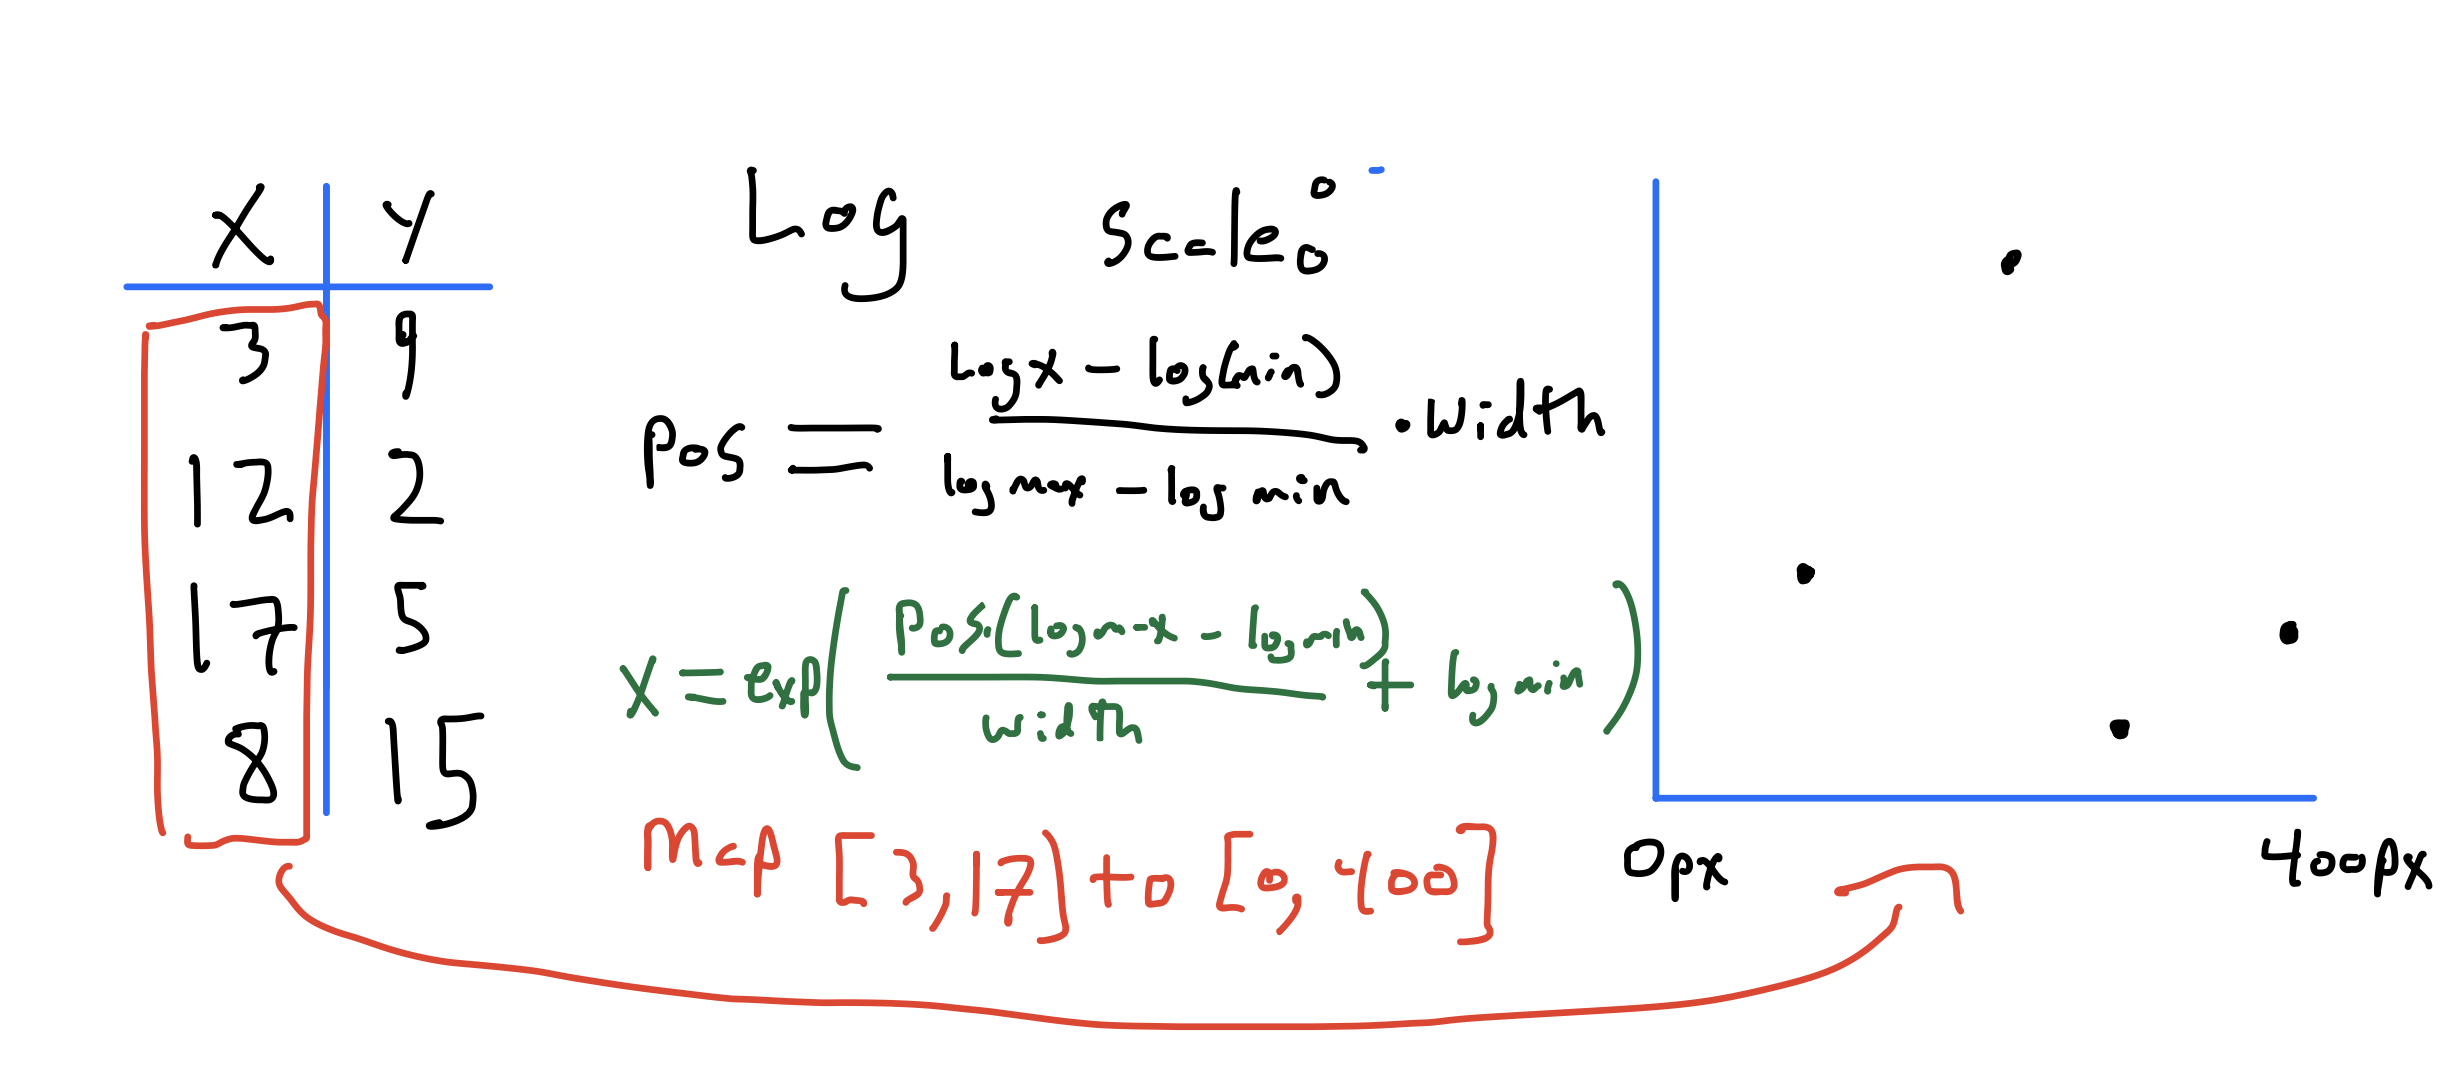 X Y
3 9
12 2
17 5
8 15
Log Scale:
pos = (log x - log(min)) / (log max - log min) · width
x = exp( pos·(log max - log min) / width + log min )
Map [3, 17] to [0, 400]
0px 400px